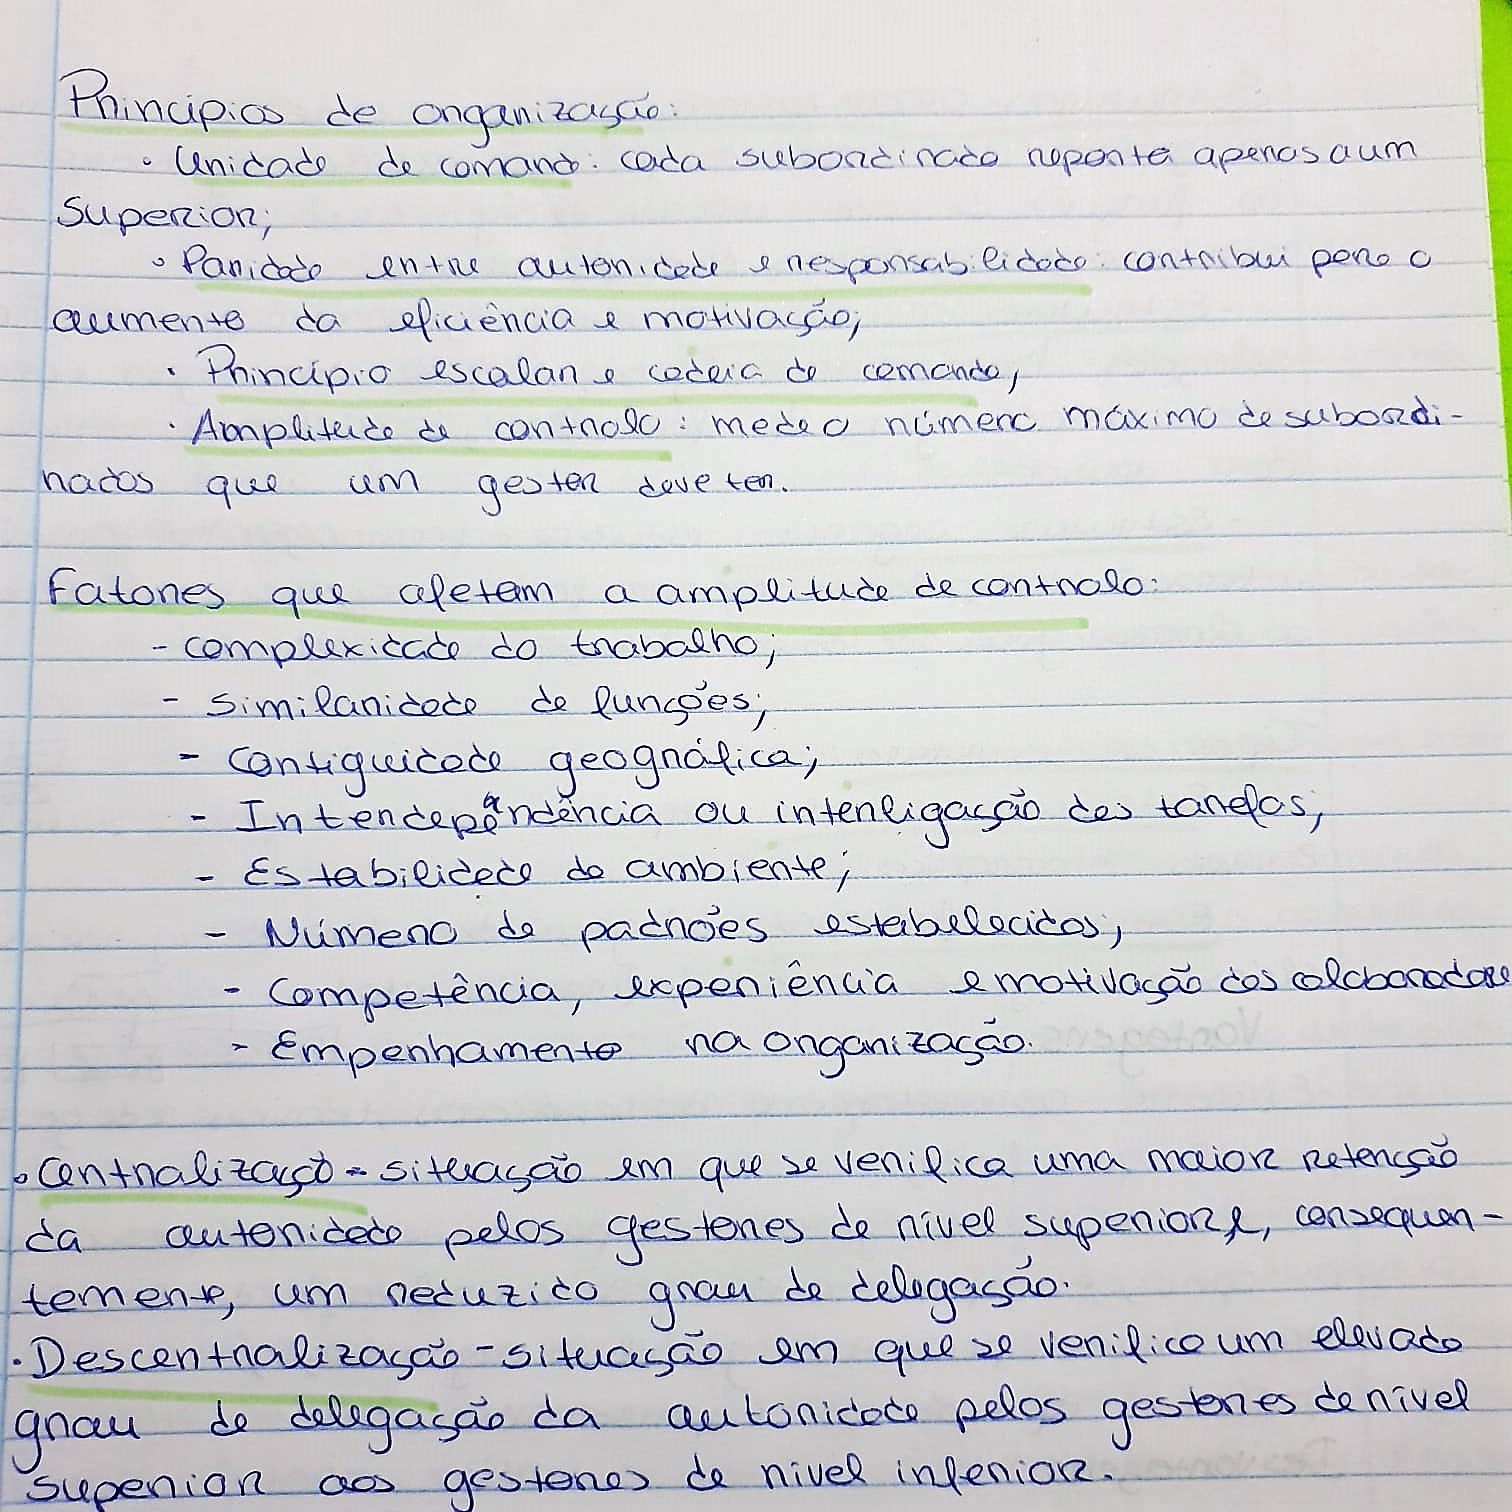 Princípios de organização:
• Unidade de comando: cada subordinado reporta apenas a um
superior;
• Paridade entre autoridade e responsabilidade: contribui para o
aumento da eficiência e motivação;
• Princípio escalar e cadeia de comando;
• Amplitude de controlo: mede o número máximo de subordi-
nados que um gestor deve ter.
Fatores que afetam a amplitude de controlo:
- complexidade do trabalho;
- similaridade de funções;
- contiguidade geográfica;
- Interdependência ou interligação das tarefas;
- Estabilidade do ambiente;
- Número de padrões estabelecidos;
- Competência, experiência e motivação dos colaboradore
- Empenhamento na organização.
• Centralização - situação em que se verifica uma maior retenção
da autoridade pelos gestores de nível superior e, consequen-
temente, um reduzido grau de delegação.
• Descentralização - situação em que se verifica um elevado
grau de delegação da autoridade pelos gestores de nível
superior aos gestores de nível inferior.